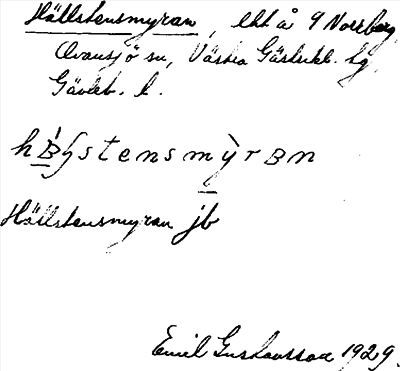 Hällstensmyran, ekt å 9 Norrberg
Ovansjö sn, Västra Gästrikl. hg
Gävleb. l.
hällstensmyran
Hällstensmyran jb
Emil Gustavsson 1929.